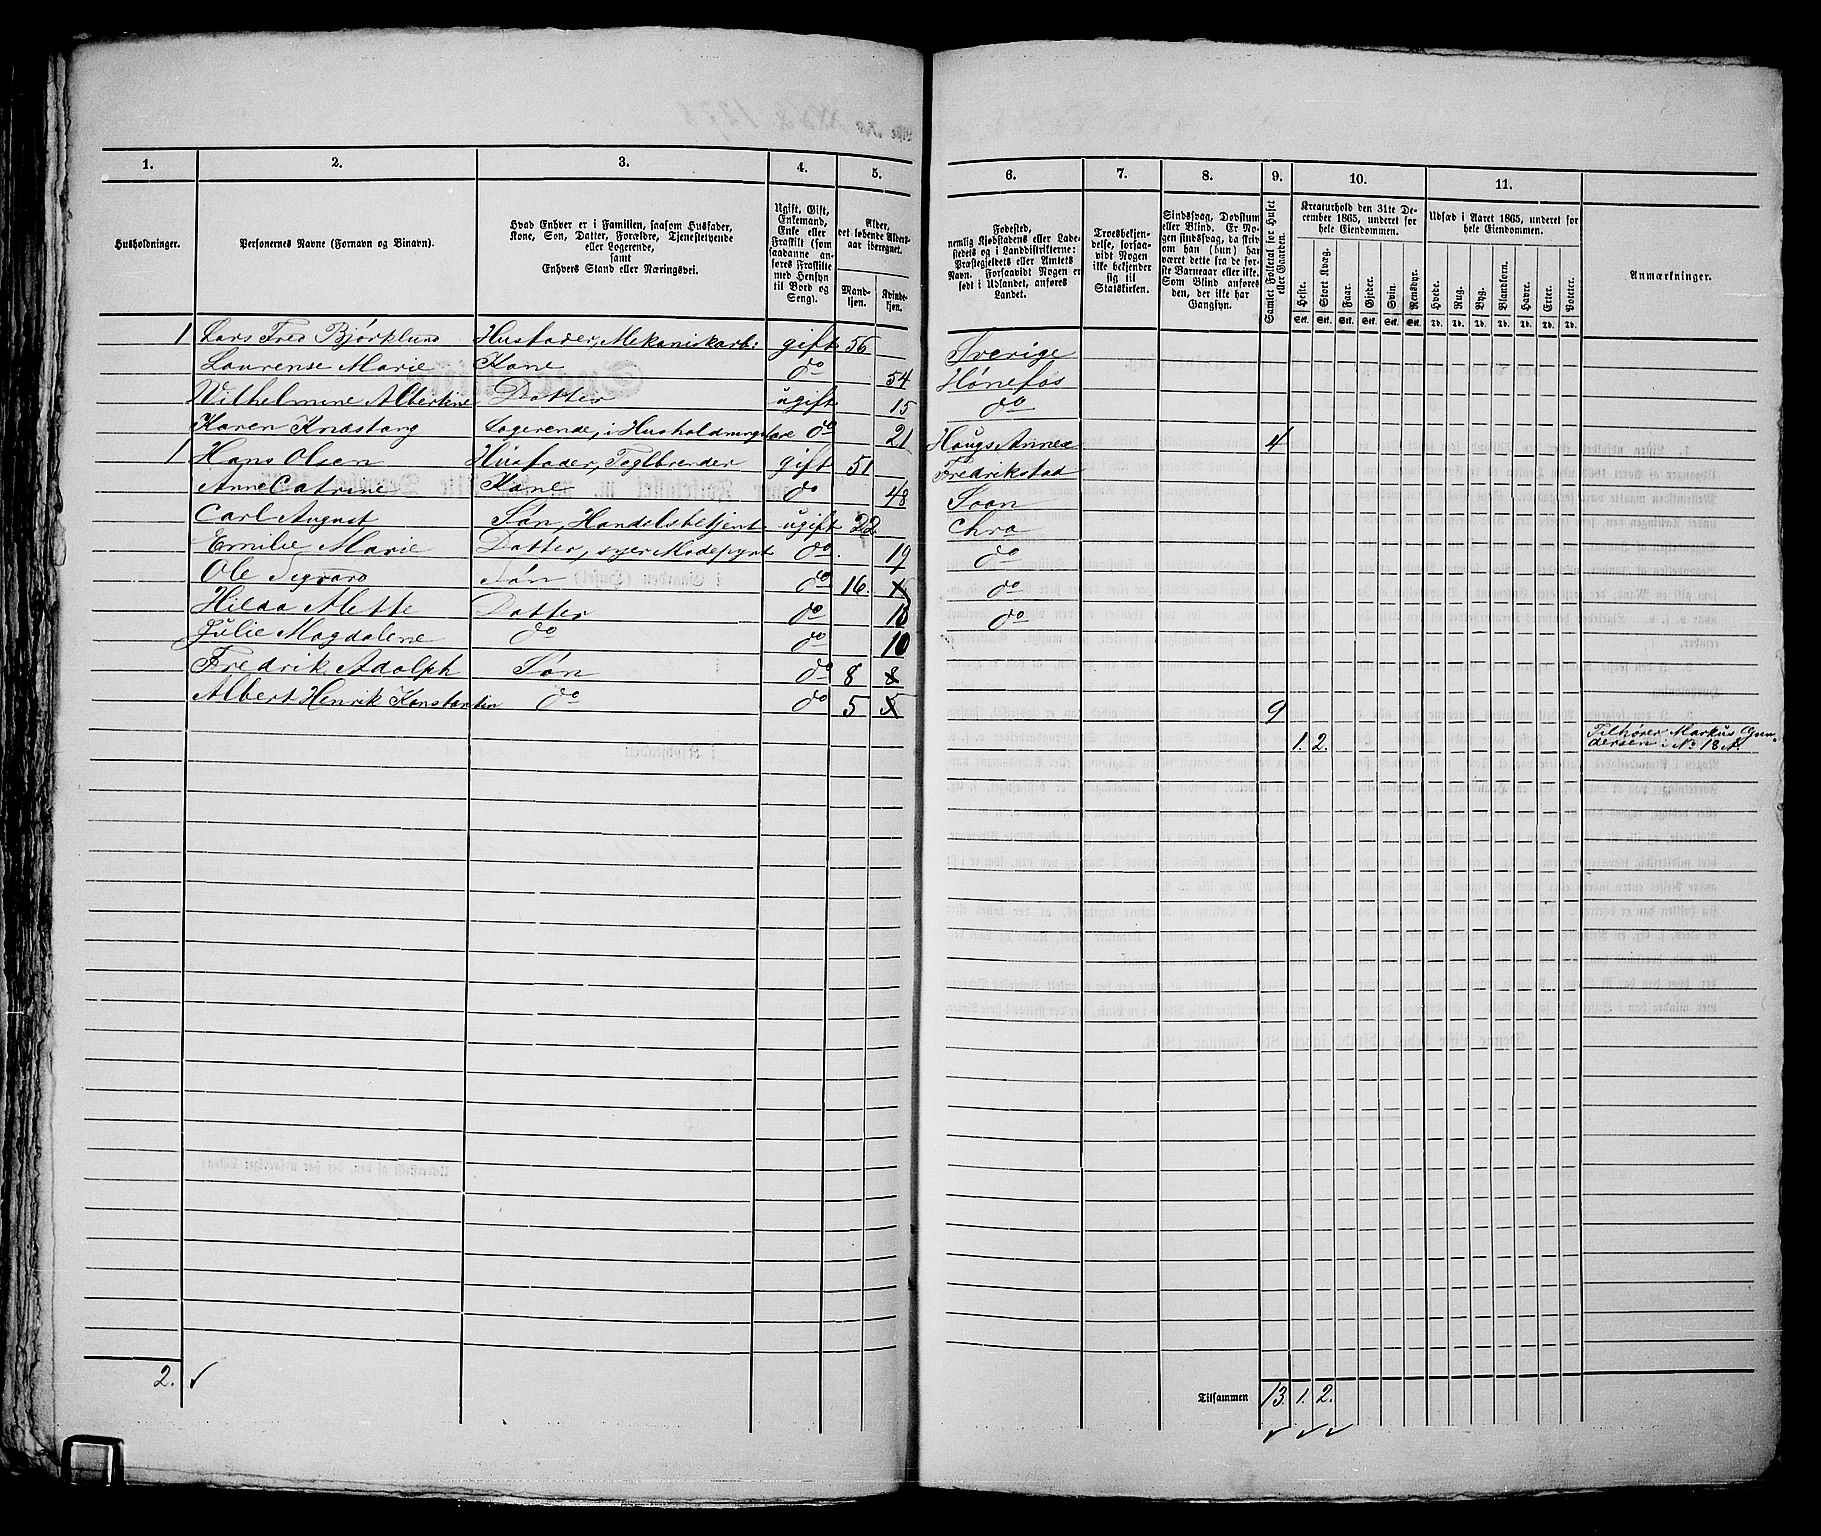 1. 2. 3. 4. 5. 6. 7. 8. 9. 10. 11.
Husholdninger.
Personernes Navne (Fornavn og Binavn).
Hvad Enhver er i Familien, saasom Husfader,
Kone, Søn, Datter, Forældre, Tjenestetyende
eller Logerende,
samt
Enhvers Stand eller Næringsvei.
Ugift, Gift,
Enkemand,
Enke eller
Fraskilt (som
saadanne an-
føres Fraskilte
med Hensyn
til Bord og
Seng).
Alder,
det løbende Alders-
aar iberegnet.
Mand-
kjøn.
Kvinde-
kjøn.
Fødested,
nemlig Kjøbstadens eller Lade-
stedets og i Landdistrikterne:
Præstegjeldets eller Amtets
Navn. Forsaavidt Nogen er
født i Udlandet, anføres
Landet.
Troesbekjen-
delse, forsaa-
vidt Nogen
ikke bekjender
sig til
Statskirken.
Sindssvag, Døvstum
eller Blind. Er No-
gen sindssvag, da skriv
om han (hun) har
været dette fra de før-
ste Barneaar eller ikke.
Som Blind anføres
den, der ikke har
Gangsyn.
Samlet Folketal for Huset
eller Gaarden.
Kreaturhold den 31te De-
cember 1865, underet for
hele Eiendommen.
Heste. Stort Kvæg. Faar. Gjeder. Svin. Rensdyr.
Stk. Stk. Stk. Stk. Stk. Stk.
Udsæd i Aaret 1865, underet for
hele Eiendommen.
Hvede. Rug. Byg. Blandkorn. Havre. Erter. Poteter.
Td. Td. Td. Td. Td. Td. Td.
Anmærkninger.
1 Lars Fred Bjørklund Husfader, Mekaniskarb: gift 56 Sverige
Laurense Marie Kone do 54 Hønefos
Wilhelmine Albertine Datter ugift 15 do
Karen Knæstang Logerende, i Husholdningslære do 21 Hougs Annex 4
1 Hans Olsen Husfader, Teglbrender gift 51 Fredrikstad
Anne Catrine Kone do 48 Soon
Carl August Søn, Handelsbetjent ugift 22 Chra
Emilie Marie Datter, syer Modepynt do 19 do
Ole Sigvard Søn do 16 do
Hilda Mette Datter do 15 do
Julie Magdalene do do 10
Fredrik Adolph Søn do 8 8
Albert Henrik Konstantin do do 5 5 9
1. 2. Tilhører Markus Gun-
dersen i No 18 A.
2.
Tilsammen 13. 1. 2.